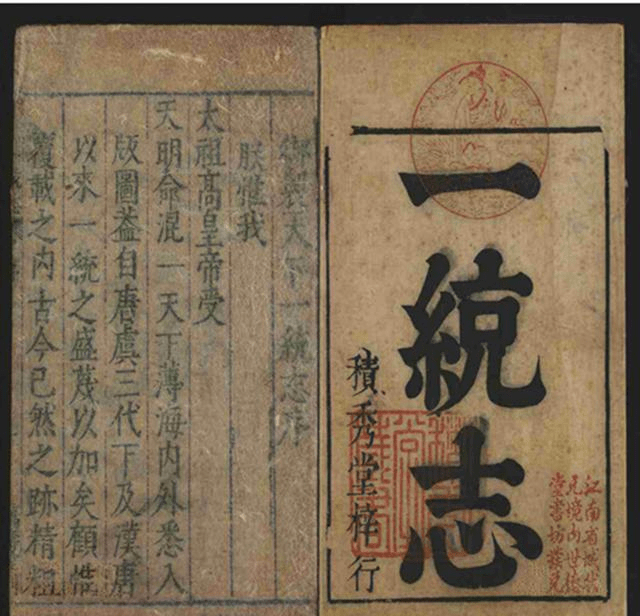 一統志
積秀堂梓行
江南省城
御製天下一統志序
朕惟我
太祖高皇帝受
天明命混一天下薄海内外悉入
版圖葢自唐虞三代下及漢唐
以來一統之盛蔑以加矣顧惟
覆載之内古今已然之跡精粗